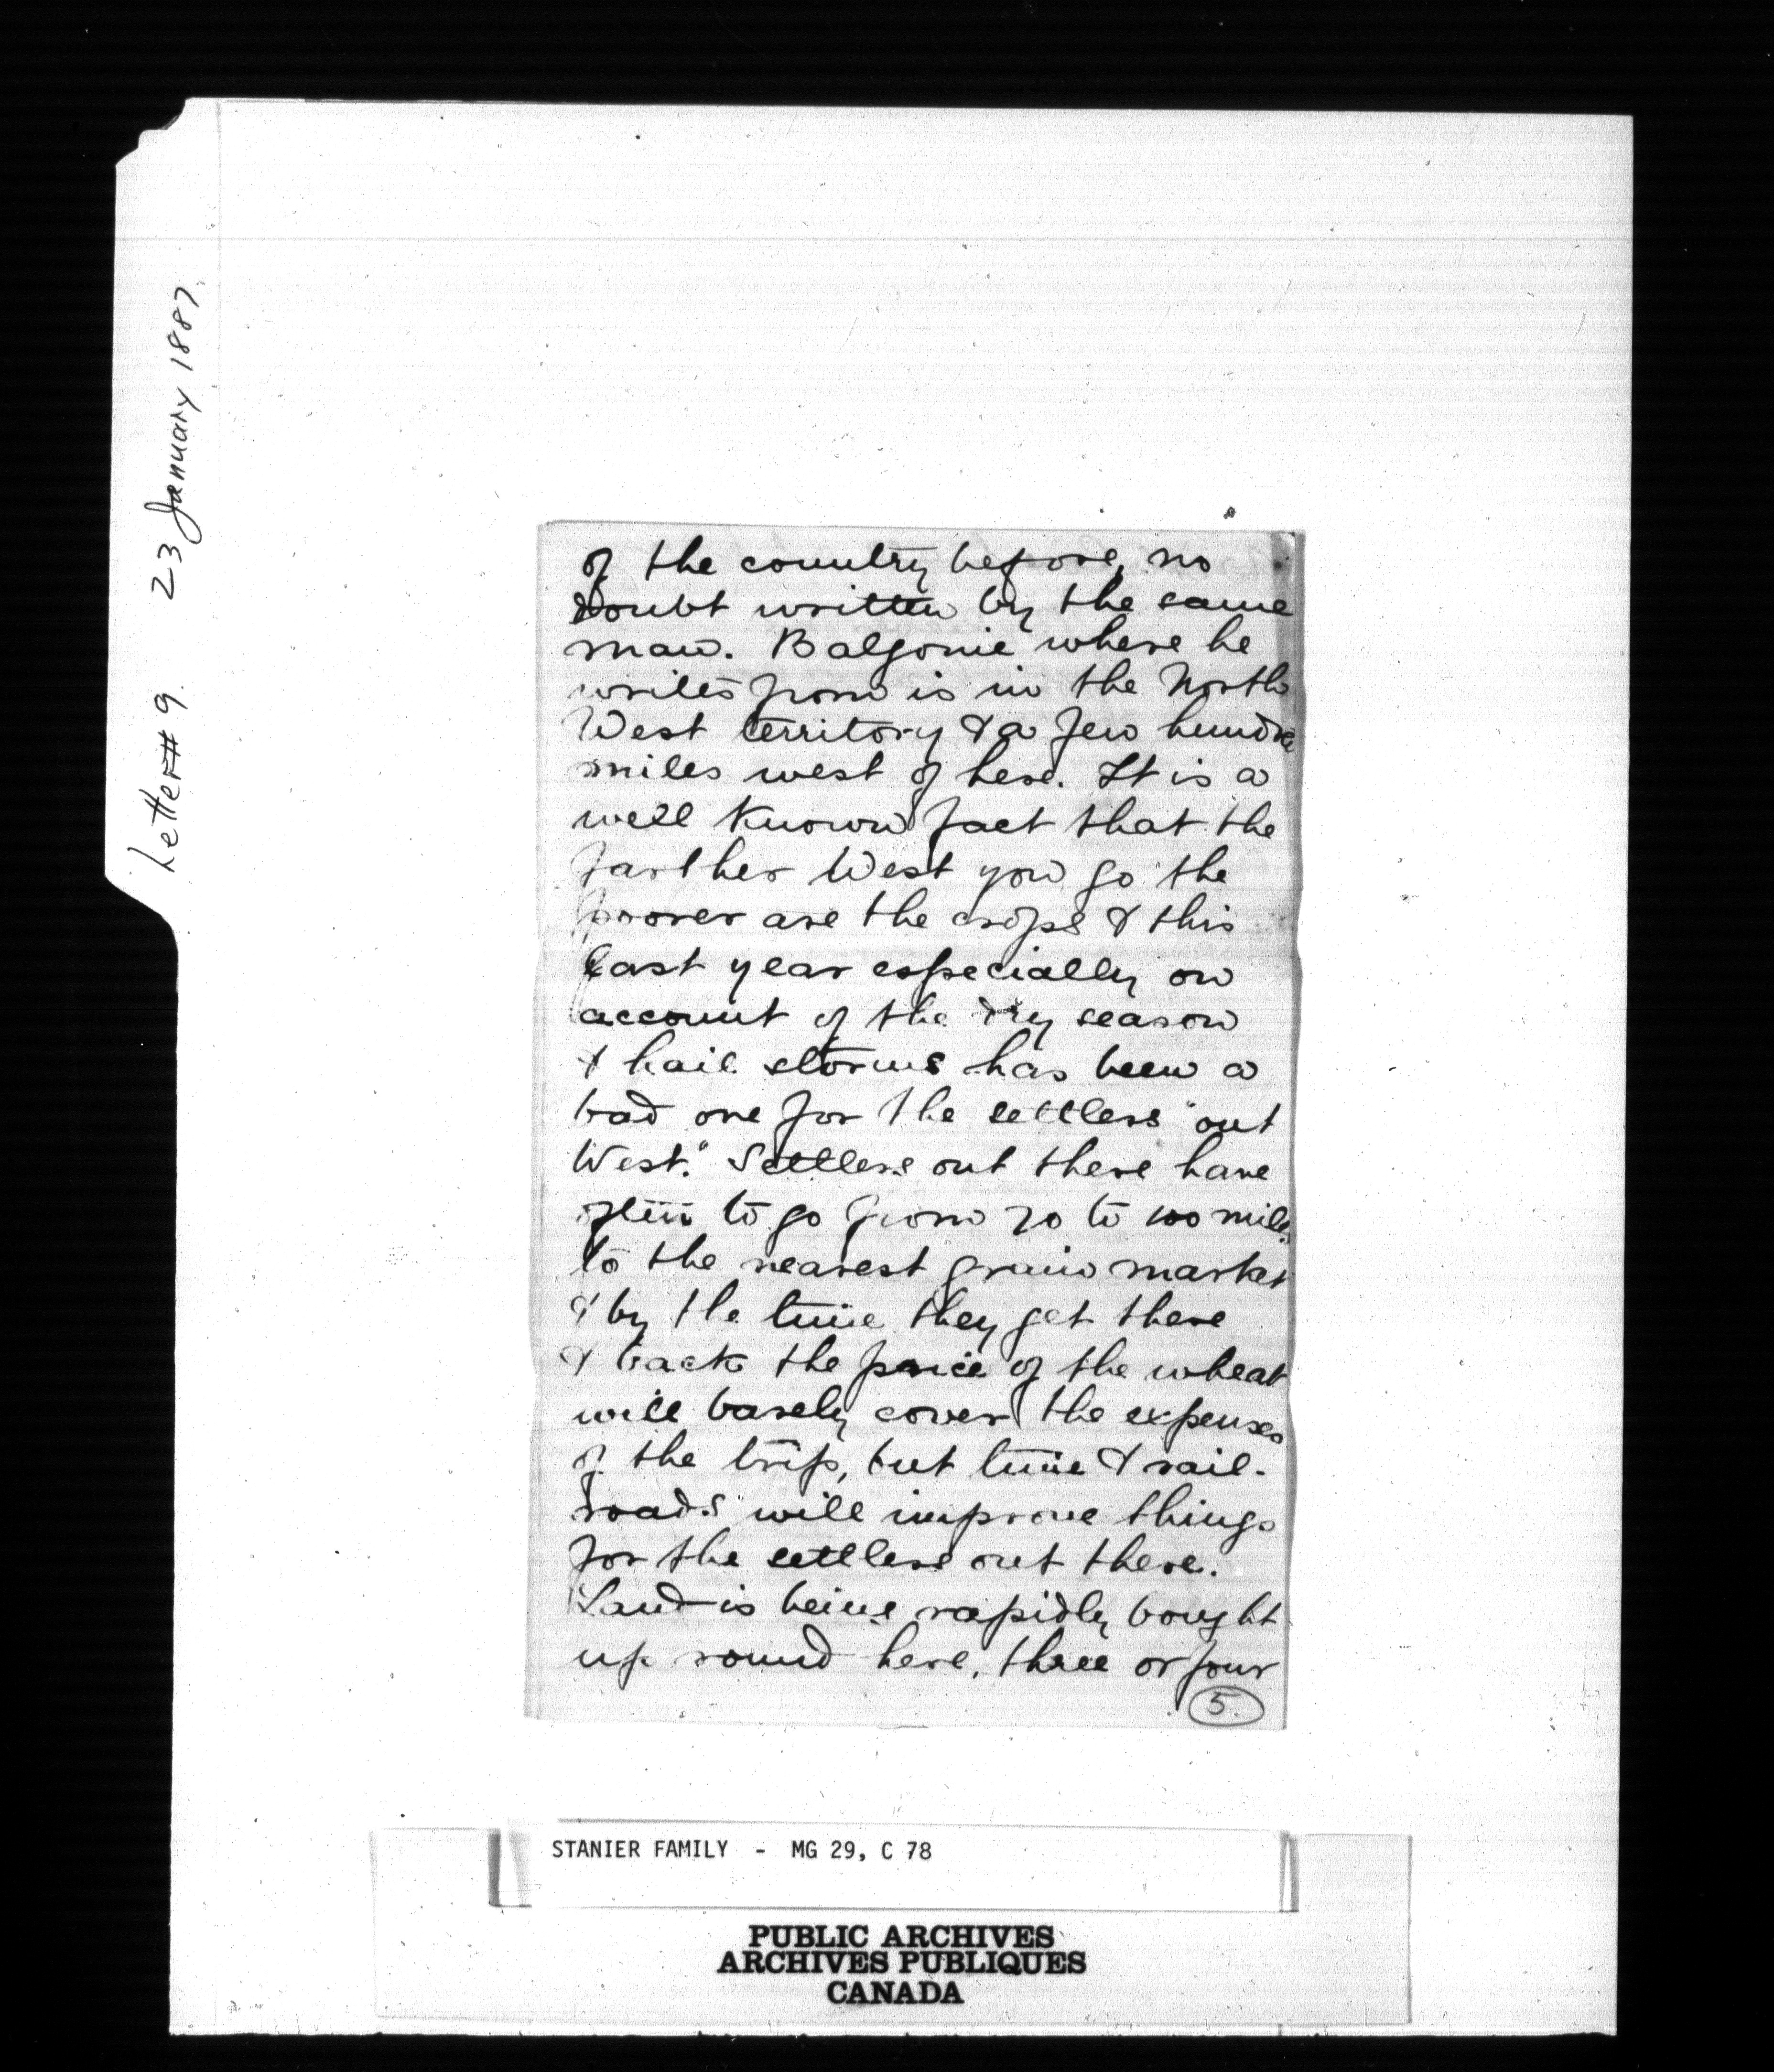 Letter # 9. 23 January 1887.
of the country before, no
doubt written by the same
man. Balgonie where he
writes from is in the North
West territory & a few hundre
miles west of here. It is a
well known fact that the
farther West you go the
poorer are the crops & this
last year especially on
account of the dry season
& hail storms has been a
bad one for the settlers "out
West." Settlers out there have
often to go from 20 to 100 miles
to the nearest grain market
& by the time they get there
& back the price of the wheat
will barely cover the expenses
of the trip, but time & rail-
roads will improve things
for the settlers out there.
Land is being rapidly bought
up round here, three or four
5.
STANIER FAMILY - MG 29, C 78
PUBLIC ARCHIVES
ARCHIVES PUBLIQUES
CANADA